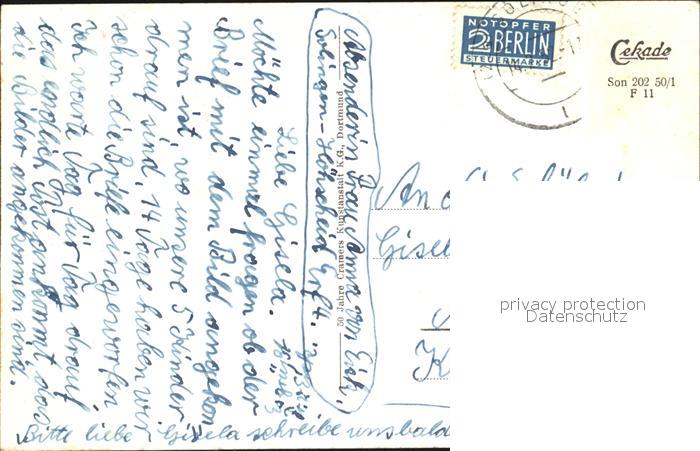 NOTOPFER
2 BERLIN
STEUERMARKE
Cekade
Son 202 50/1
F 11
Absenderin Frau Anna von Eick,
Solingen-Höhscheid Erfst.
50 Jahre Cramers Kunstanstalt K.G., Dortmund
Liebe Gisela.
Möchte einmal fragen ob der
Brief mit dem Bild angekom
men ist, wo unsere 5 Kinder
drauf sind, 14 Tage haben wir
schon die Briefe eingeworfen
Ich warte Tag für Tag drauf
das endlich Post ankommt das
die Bilder angekommen sind.
Bitte liebe Gisela schreibe uns bald
An
Gisel
K
privacy protection
Datenschutz